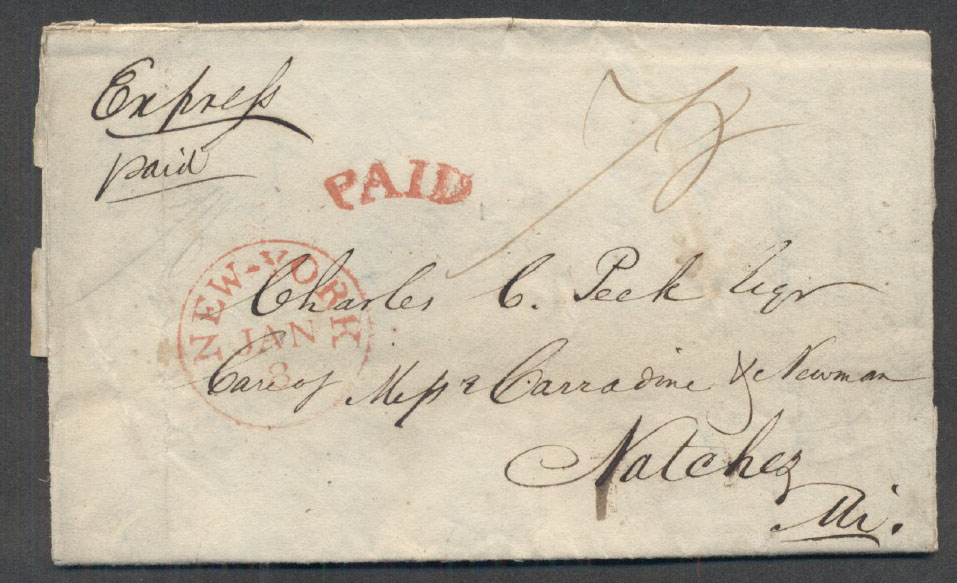 Express
paid
PAID
NEW-YORK
JAN
8
Charles C. Peck Esqr
Care of Messrs Carradine & Newman
Natchez
Mi.